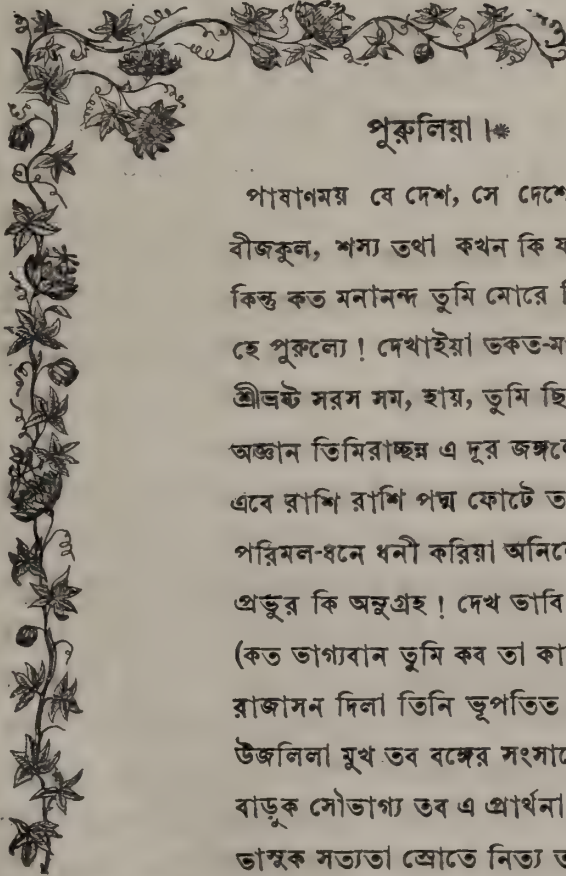 পুরুলিয়া।*
পাষাণময় যে দেশ, সে দেশে
বীজকুল, শস্য তথা কখন কি
কিন্তু কত মনানন্দ তুমি মোরে
হে পুরুল্যে! দেখাইয়া ভকত-ম
শ্রীভ্রষ্ট সরস সম, হায়, তুমি ছি
অজ্ঞান তিমিরাচ্ছন্ন এ দূর জঙ্গলে
এবে রাশি রাশি পদ্ম ফোটে ত
পরিমল-ধনে ধনী করিয়া অনিলে
প্রভুর কি অনুগ্রহ! দেখ ভাবি
(কত ভাগ্যবান তুমি কব তা কা
রাজাসন দিলা তিনি ভূপতিত
উজলিলা মুখ তব বঙ্গের সংসারে
বাড়ুক সৌভাগ্য তব এ প্রার্থনা
ভাসুক সত্যতা স্রোতে নিত্য ত